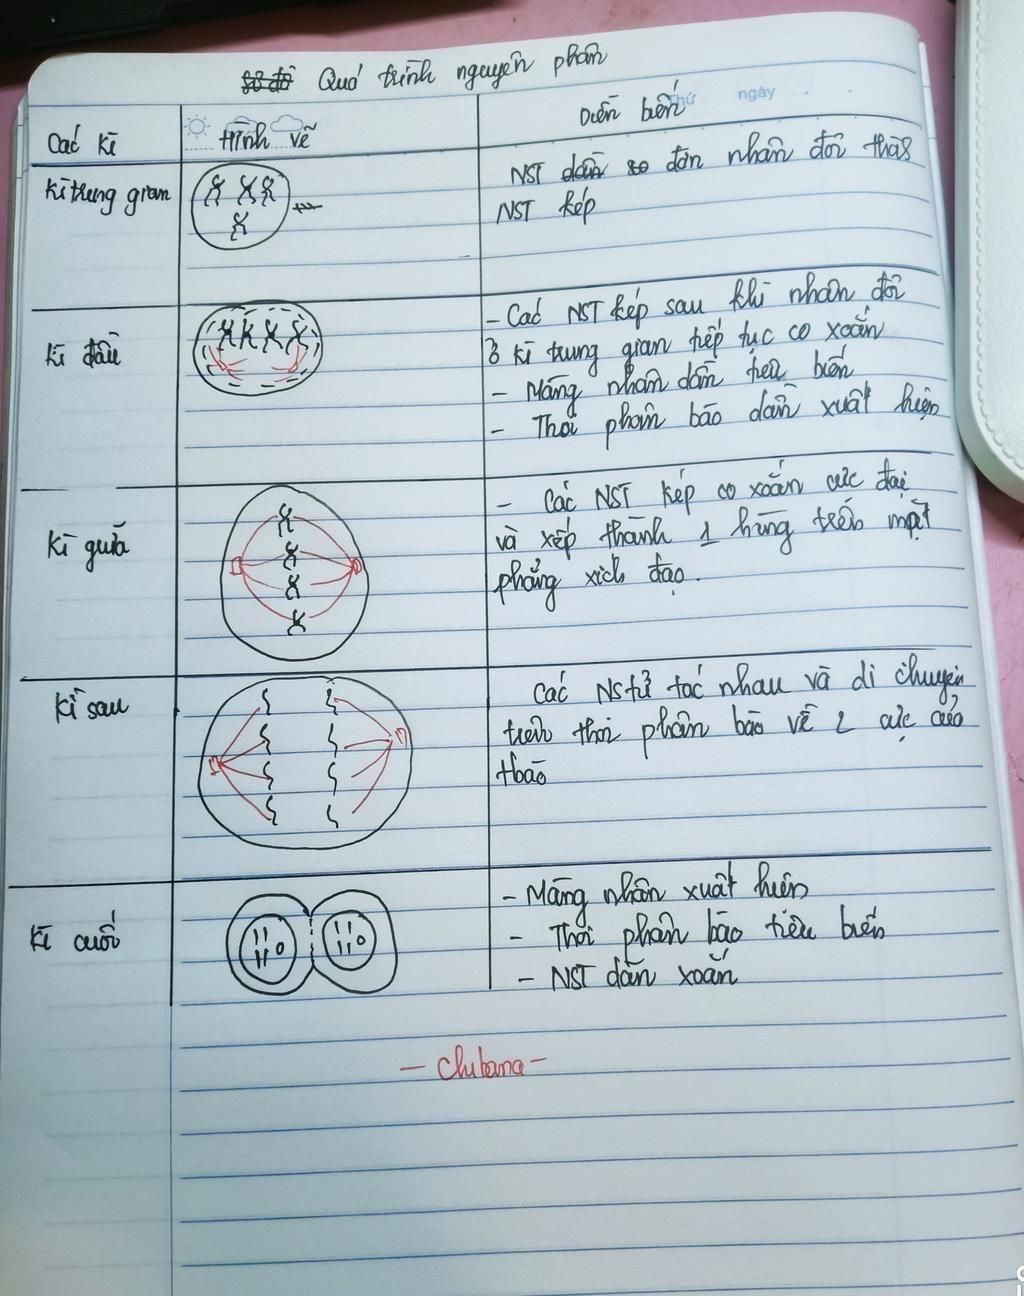 Quá trình nguyên phân
Thứ ngày
Các kì
Hình vẽ
Diễn biến
Kì trung gian
NST đơn nhân đôi thà
NST kép
Kì đầu
- Các NST kép sau khi nhân đôi
ở kì trung gian tiếp tục co xoắn
- Màng nhân dần tiêu biến
- Thoi phân bào dần xuất hiện
Kì giữa
- Các NST kép co xoắn cực đại
và xếp thành 1 hàng trên mặt
phẳng xích đạo.
Kì sau
Các NS tử tác nhau và di chuyển
trên thoi phân bào về 2 cực của
tbào
Kì cuối
- Màng nhân xuất hiện
- Thoi phân bào tiêu biến
- NST dãn xoắn